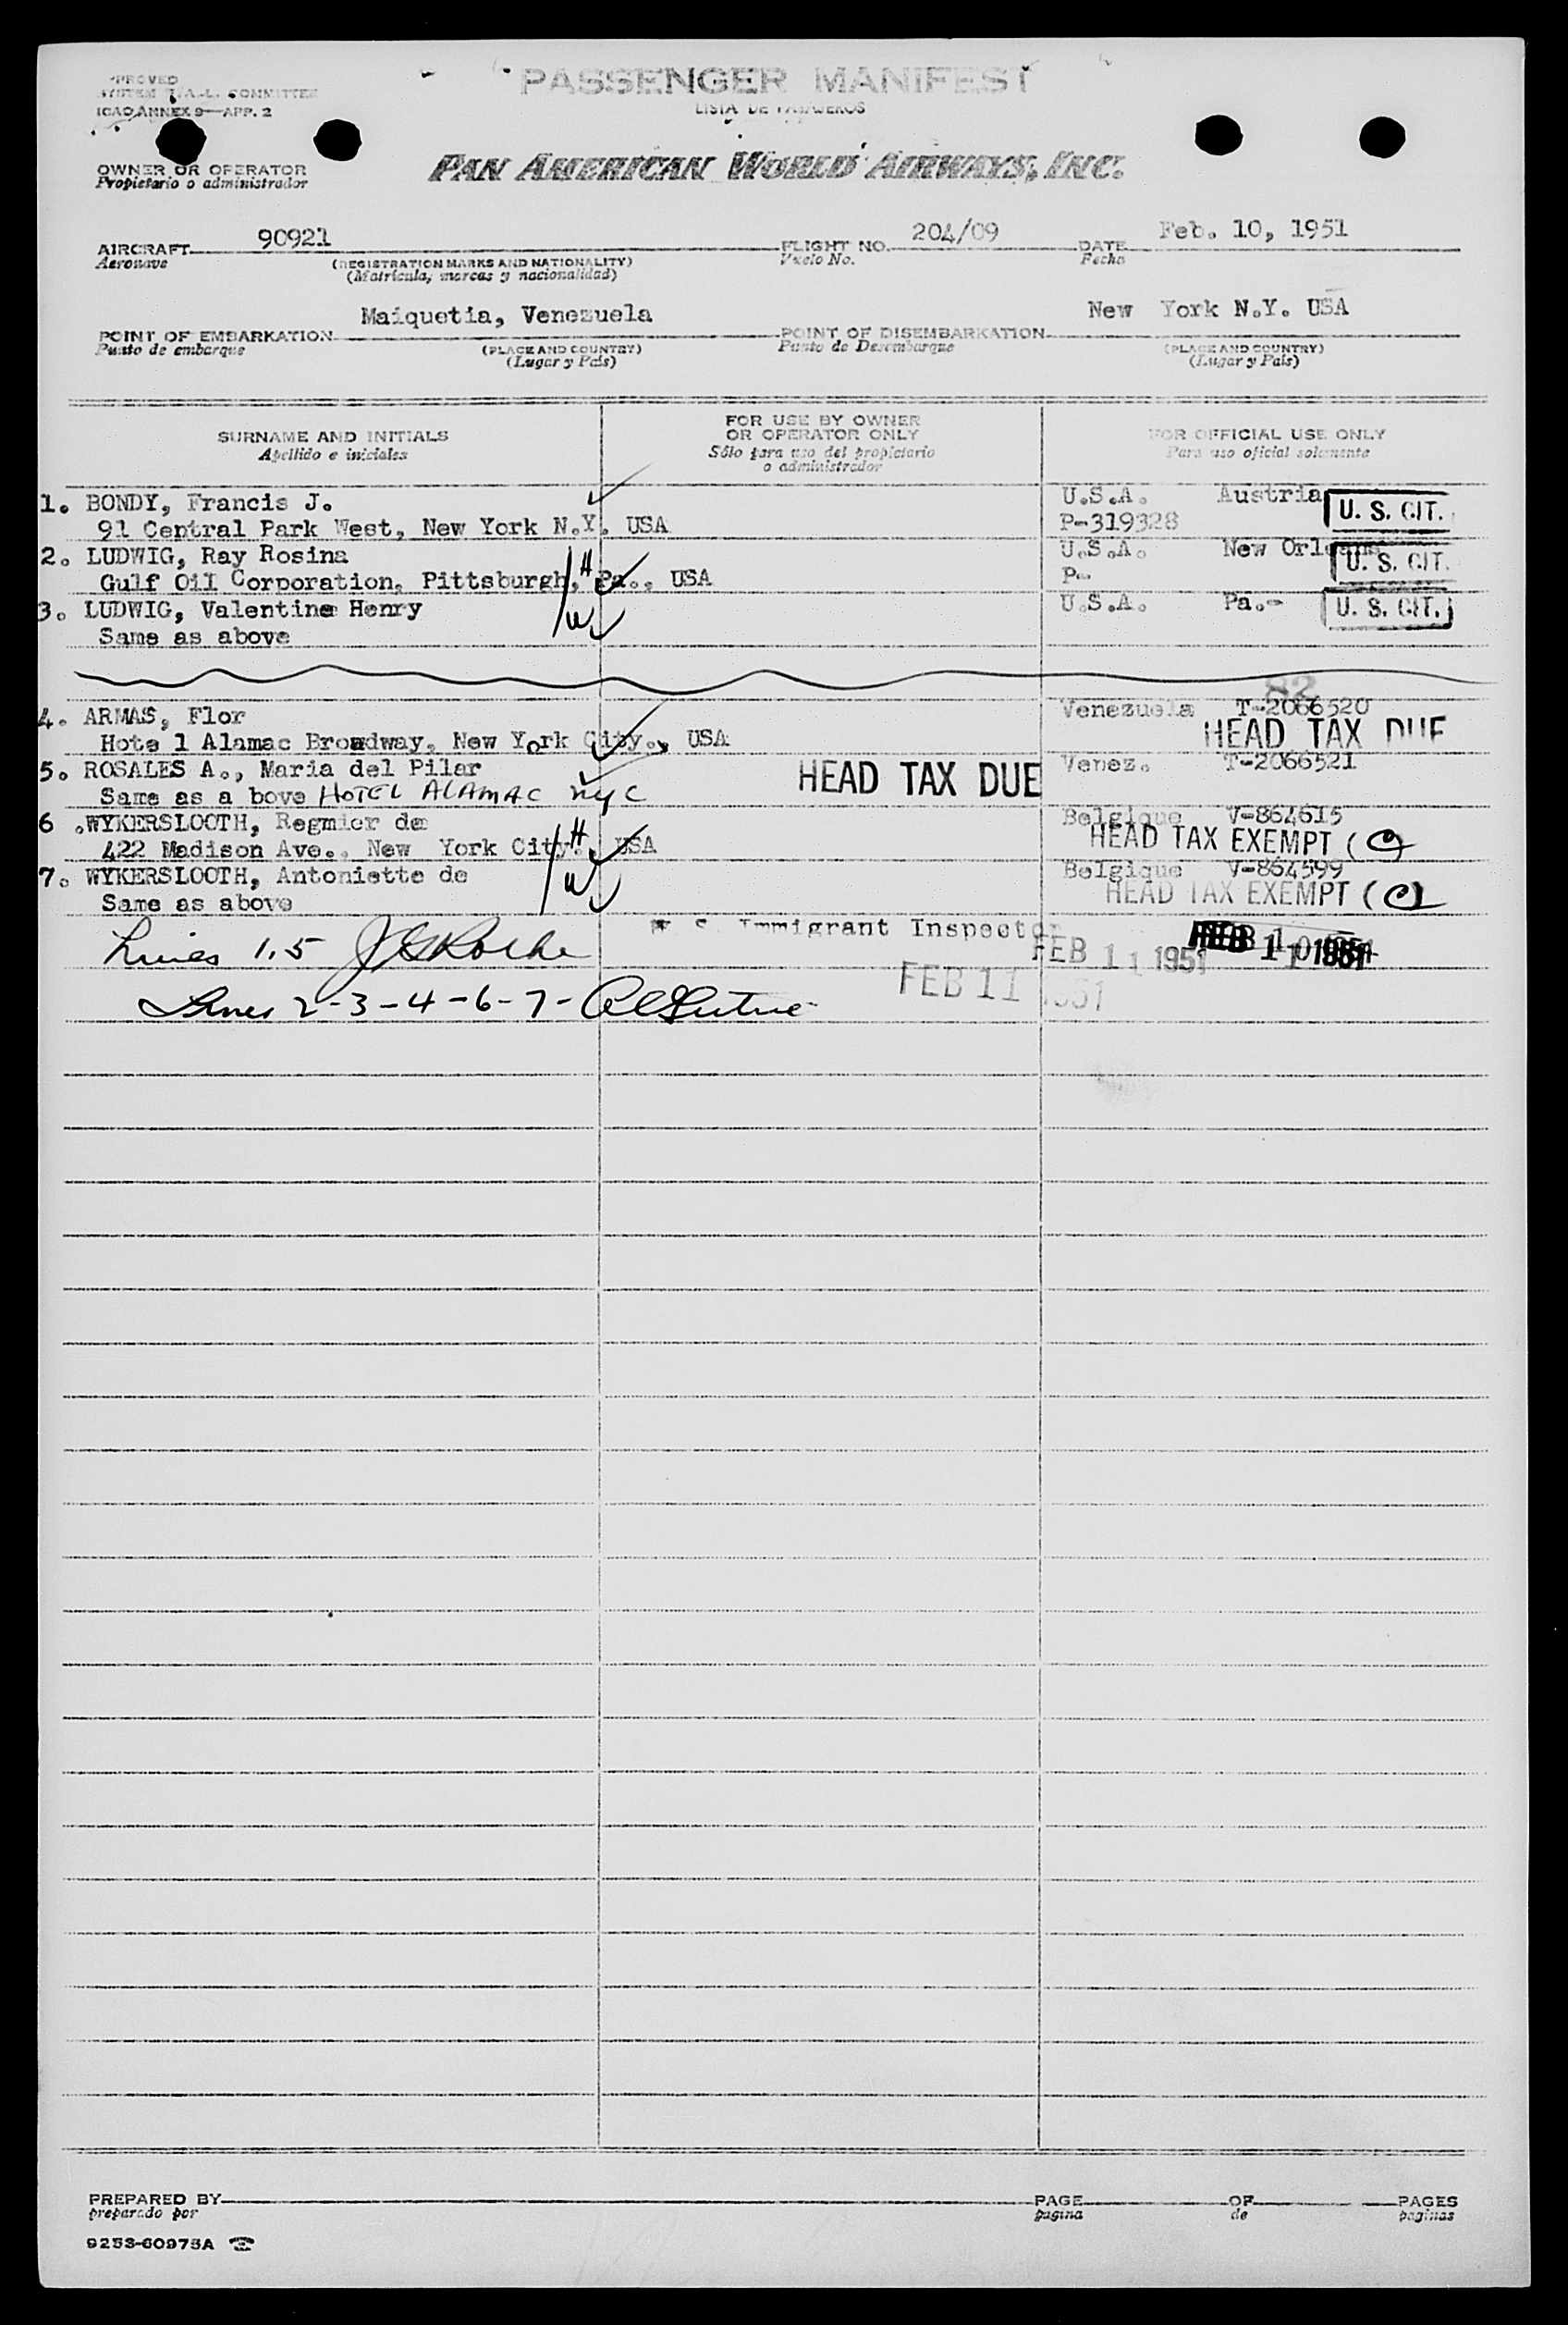 PASSENGER MANIFEST
LISTA DE PASAJEROS
ICAO ANNEX 9—APP. 2
OWNER OR OPERATOR
Propietario o administrador
PAN AMERICAN WORLD AIRWAYS, INC.
AIRCRAFT 90921 FLIGHT NO. 204/09 DATE Feb. 10, 1951
Aeronave (REGISTRATION MARKS AND NATIONALITY) Vuelo No. Fecha
(Matrícula, marcas y nacionalidad)
POINT OF EMBARKATION Maiquetia, Venezuela POINT OF DISEMBARKATION New York N.Y. USA
Punto de embarque (PLACE AND COUNTRY) Punto de Desembarque (PLACE AND COUNTRY)
(Lugar y País) (Lugar y País)
SURNAME AND INITIALS
Apellido e iniciales
FOR USE BY OWNER
OR OPERATOR ONLY
Sólo para uso del propietario
o administrador
FOR OFFICIAL USE ONLY
Para uso oficial solamente
1. BONDY, Francis J. U.S.A. Austria U. S. CIT.
91 Central Park West, New York N.Y. USA P-319328
2. LUDWIG, Ray Rosina U.S.A. New Orleans U. S. CIT.
Gulf Oil Corporation, Pittsburgh, Pa., USA P- H
3. LUDWIG, Valentine Henry U.S.A. Pa.- U. S. CIT.
Same as above W
82
4. ARMAS, Flor Venezuela T-2066520
Hote l Alamac Broadway, New York City., USA HEAD TAX DUE
5. ROSALES A., Maria del Pilar HEAD TAX DUE Venez. T-2066521
Same as a bove HOTEL ALAMAC nyc
6 .WYKERSLOOTH, Regmier de Belgique V-864615
422 Madison Ave., New York City. USA H HEAD TAX EXEMPT (
7. WYKERSLOOTH, Antoniette de Belgique V-864599
Same as above W HEAD TAX EXEMPT (
Lines 1.5 U S. Immigrant Inspector FEB 11 1951
Lines 2-3-4-6-7- FEB 11 1951
PREPARED BY PAGE OF PAGES
preparado por página de páginas
9253-60975A